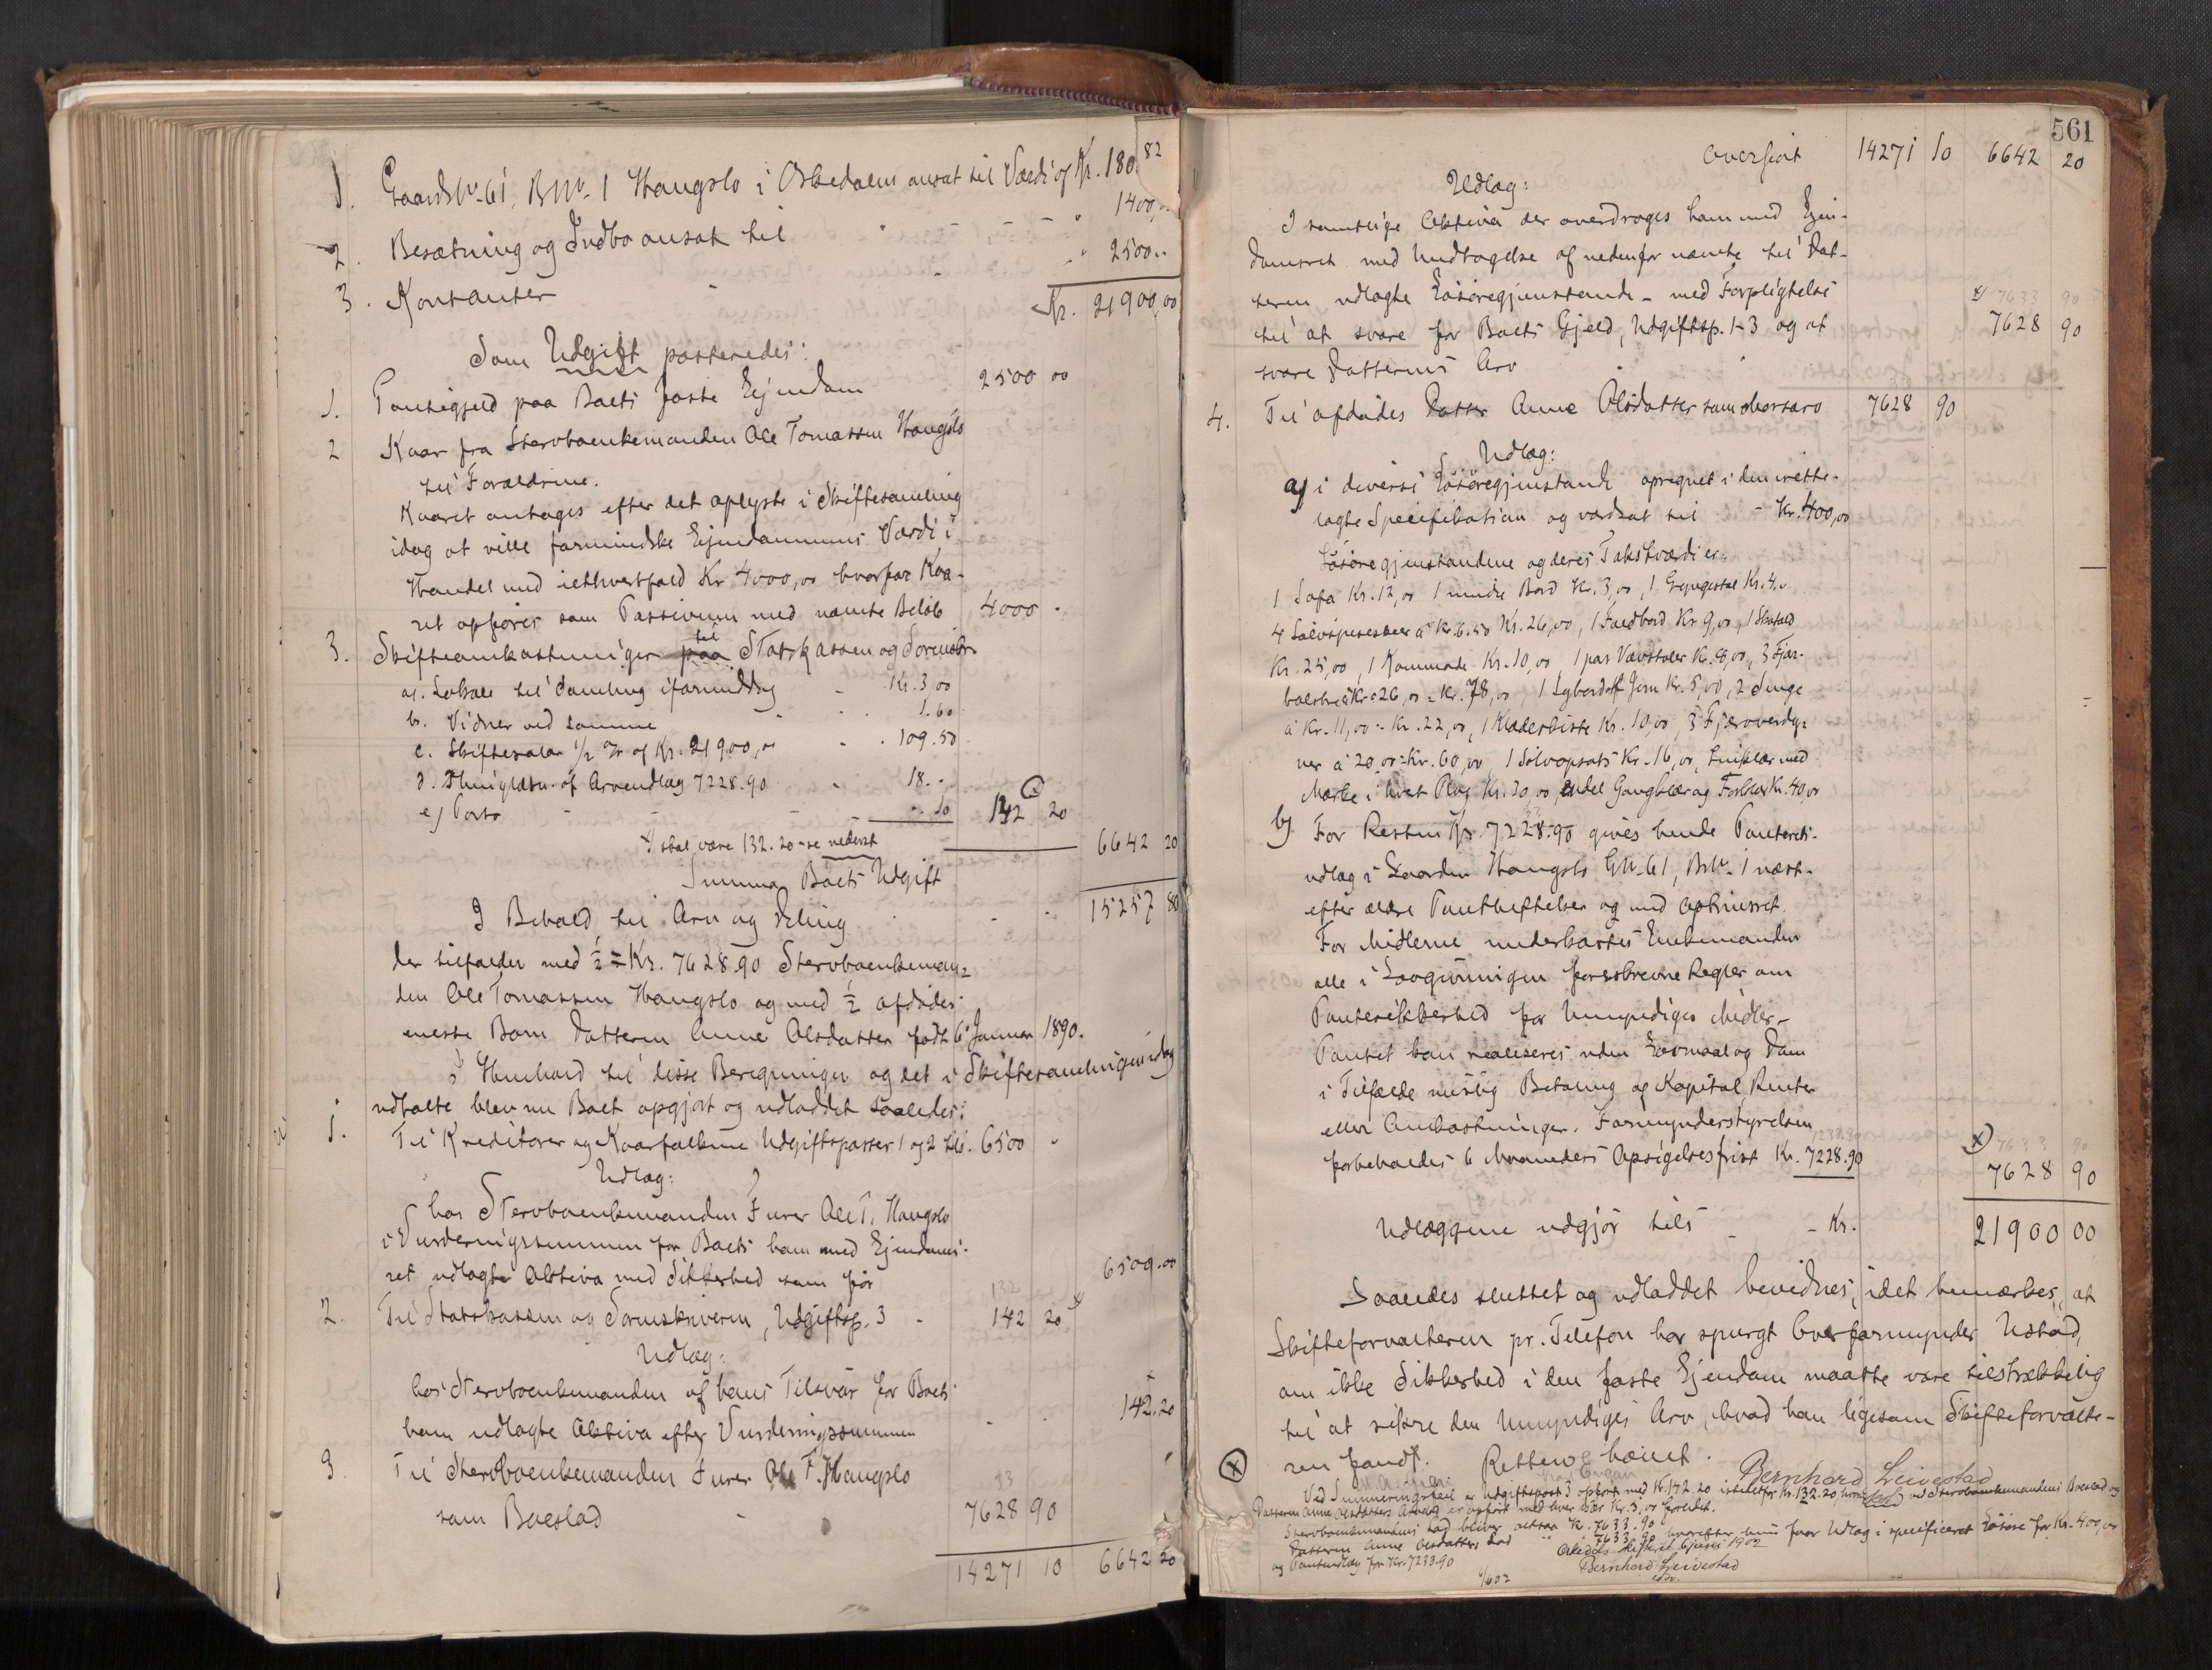 1. Gaards No. 61, BNo. 1 Haugslo i Orkedalen ansat til Værdi af Kr. 180 82
2. Besætning og Indbo ansat til " 1400,..
3. Kontanter " 2500..
Kr. 21900,00
Som Udgift posteredes:
1. Pantegjeld paa Boets faste Ejendom 2500 00
2 Kaar fra Stervboenkemanden Ole Tomassen Haugslo
til Forældrene.
Kaaret antages efter det oplyste i Skiftesamling
idag at ville formindske Ejendommens Værdi i
Handel med iethvertfald Kr 4000,00 hvorfor Kaa-
ret opføres som Passivum med nævnte Beløb 4000 -
3. Skifteomkostninger paa til Statskassen og Sorenskr.
a. Lokale til Samling iformiddag Kr. 3,00
b. Vidner ved samme 1.60
c. Skiftesalær 1/2 % af Kr. 21900,00 109.50
d. Thinglæsn. af Arveudlæg 7228.90 18.-
e) Porto -.10 142 20
x) skal være 132.20 - se nederst 6642 20
Summa Boets Udgift
I Behold til Arv og Deling 15257 80
der tilfalder med 1/2 = Kr. 7628.90 Stervboenkeman-
den Ole Tomassen Haugslo og med 1/2 afdødes
eneste Barn Datteren Anne Olsdatter født 6 Januar 1890.
I Henhold til disse Beregninger og det i Skiftesamlingen idag
udtalte blev nu Boet opgjort og udloddet saaledes:
1. Til Kreditorer og Kaarfolkene Udgiftsposter 1 og 2 tils. 6500 -
Udlæg:
hos Stervboenkemanden Furer Ole T. Haugslo
i Vurderingssummen for Boets ham med Ejendoms-
ret udlagte Aktiva med Sikkerhed som før 6500.00
132
2. Til Statskassen og Sorenskriveren, Udgiftsp. 3 142 20 x)
Udlæg:
hos Stervboenkemanden af hans Tilsvar for Boets
ham udlagte Aktiva efter Vurderingssummen 142.20
3. Til Stervboenkemanden Furer Ole T. Haugslo
33
som Boeslod 7628 90
14271 10 6642 20
561
Overført 14271 10 6642 20
Udlæg:
I samtlige Aktiva der overdrages ham med Ejen-
domsret med Undtagelse af nedenfor nævnte til Dat-
teren udlagte Løsøregjenstande - med Forpligtelse x) 7633 90
til at svare for Boets Gjeld, Udgiftsp. 1-3 og at 7628 90
svare Datterens Arv
4. Til afdødes Datter Anne Olsdatter som Morsarv 7628 90
Udlæg:
a) i diverse Løsøregjenstande opregnet i den irette-
lagte Specifikation og værdsat til - Kr. 400,00
Løsøregjenstandene og deres Takstværdi er:
1 Sofa Kr. 12,00 1 mindre Bord Kr. 3,00, 1 Gyngestol Kr. 4.-
4 Sølvspiseskeer à Kr. 6.50 Kr. 26,00, 1 Foldbord Kr 9,00, 1 Skatold
Kr. 25,00, 1 Kommode Kr. 10,00 1 par Vævstoler Kr. 8,00, 3 Fjær-
bolstre à Kr. 26,00 = Kr. 78,00, 1 Sybord af Jern Kr. 5,00, 2 Senge
à Kr. 11,00 = Kr. 22,00, 1 Klædeskiste Kr. 10,00, 3 Fjæroverdy-
ner à 20,00 = Kr. 60,00, 1 Sølvopsats Kr. 16,00, Linklær med
Mærke i hvert Plag Kr. 20,00, endel Gangklær og Fodklær Kr. 40,00
b) For Resten Kr. 7228.90 gives hende Panterets-
udlæg i Gaarden Haugslo GNo. 61, BNo. 1 næst-
efter ældre Pantheftelser og med Opkriusret.
For Midlerne underkastes Enkemanden
alle i Lovgivningen foreskrevne Regler om
Pantesikkerhed for Umyndiges Midler.
Pantet kan realiseres uden Lovmaal og Dom
i Tilfælde mislig Betaling af Kapital, Renter
eller Omkostninger. Formynderstyrelsen
forbeholdes 6 Maaneders Opsigelsesfrist Kr. 7228.90 x) 7633 90
7233.90 7628 90
Udlæggene udgjør tils - Kr. 21900 00
Saaledes sluttet og udloddet bevidnes, idet bemærkes, at
Skifteforvalteren pr. Telefon har spurgt Overformynder Ustad,
om ikke Sikkerhed i den faste Ejendom maatte være tilstrækkelig
til at sikre den Umyndiges Arv, hvad han ligesom Skifteforvalte-
ren fandt. Retten hævet.
Bernhard Leivestad
x) Ved Summeringsfeil er Udgiftspost 3 opført med Kr. 142.20 istedetfor Kr. 132.20 ved Stervboenkemandens Boeslod og
Datteren Anne Olsdatters Arvelod er opført med hver især Kr. 5,00 forlidet.
Stervboenkemandens Lod bliver altsaa Kr. 7633.90
Datteren Anne Olsdatters Lod " " 7633.90 hvorefter hun faar Udlæg i specificeret Løsøre for Kr. 400,00
og Panteudlæg for Kr. 7233.90
Orkedals Skifteret 6 juni 1902
Bernhard Leivestad
6/6 02